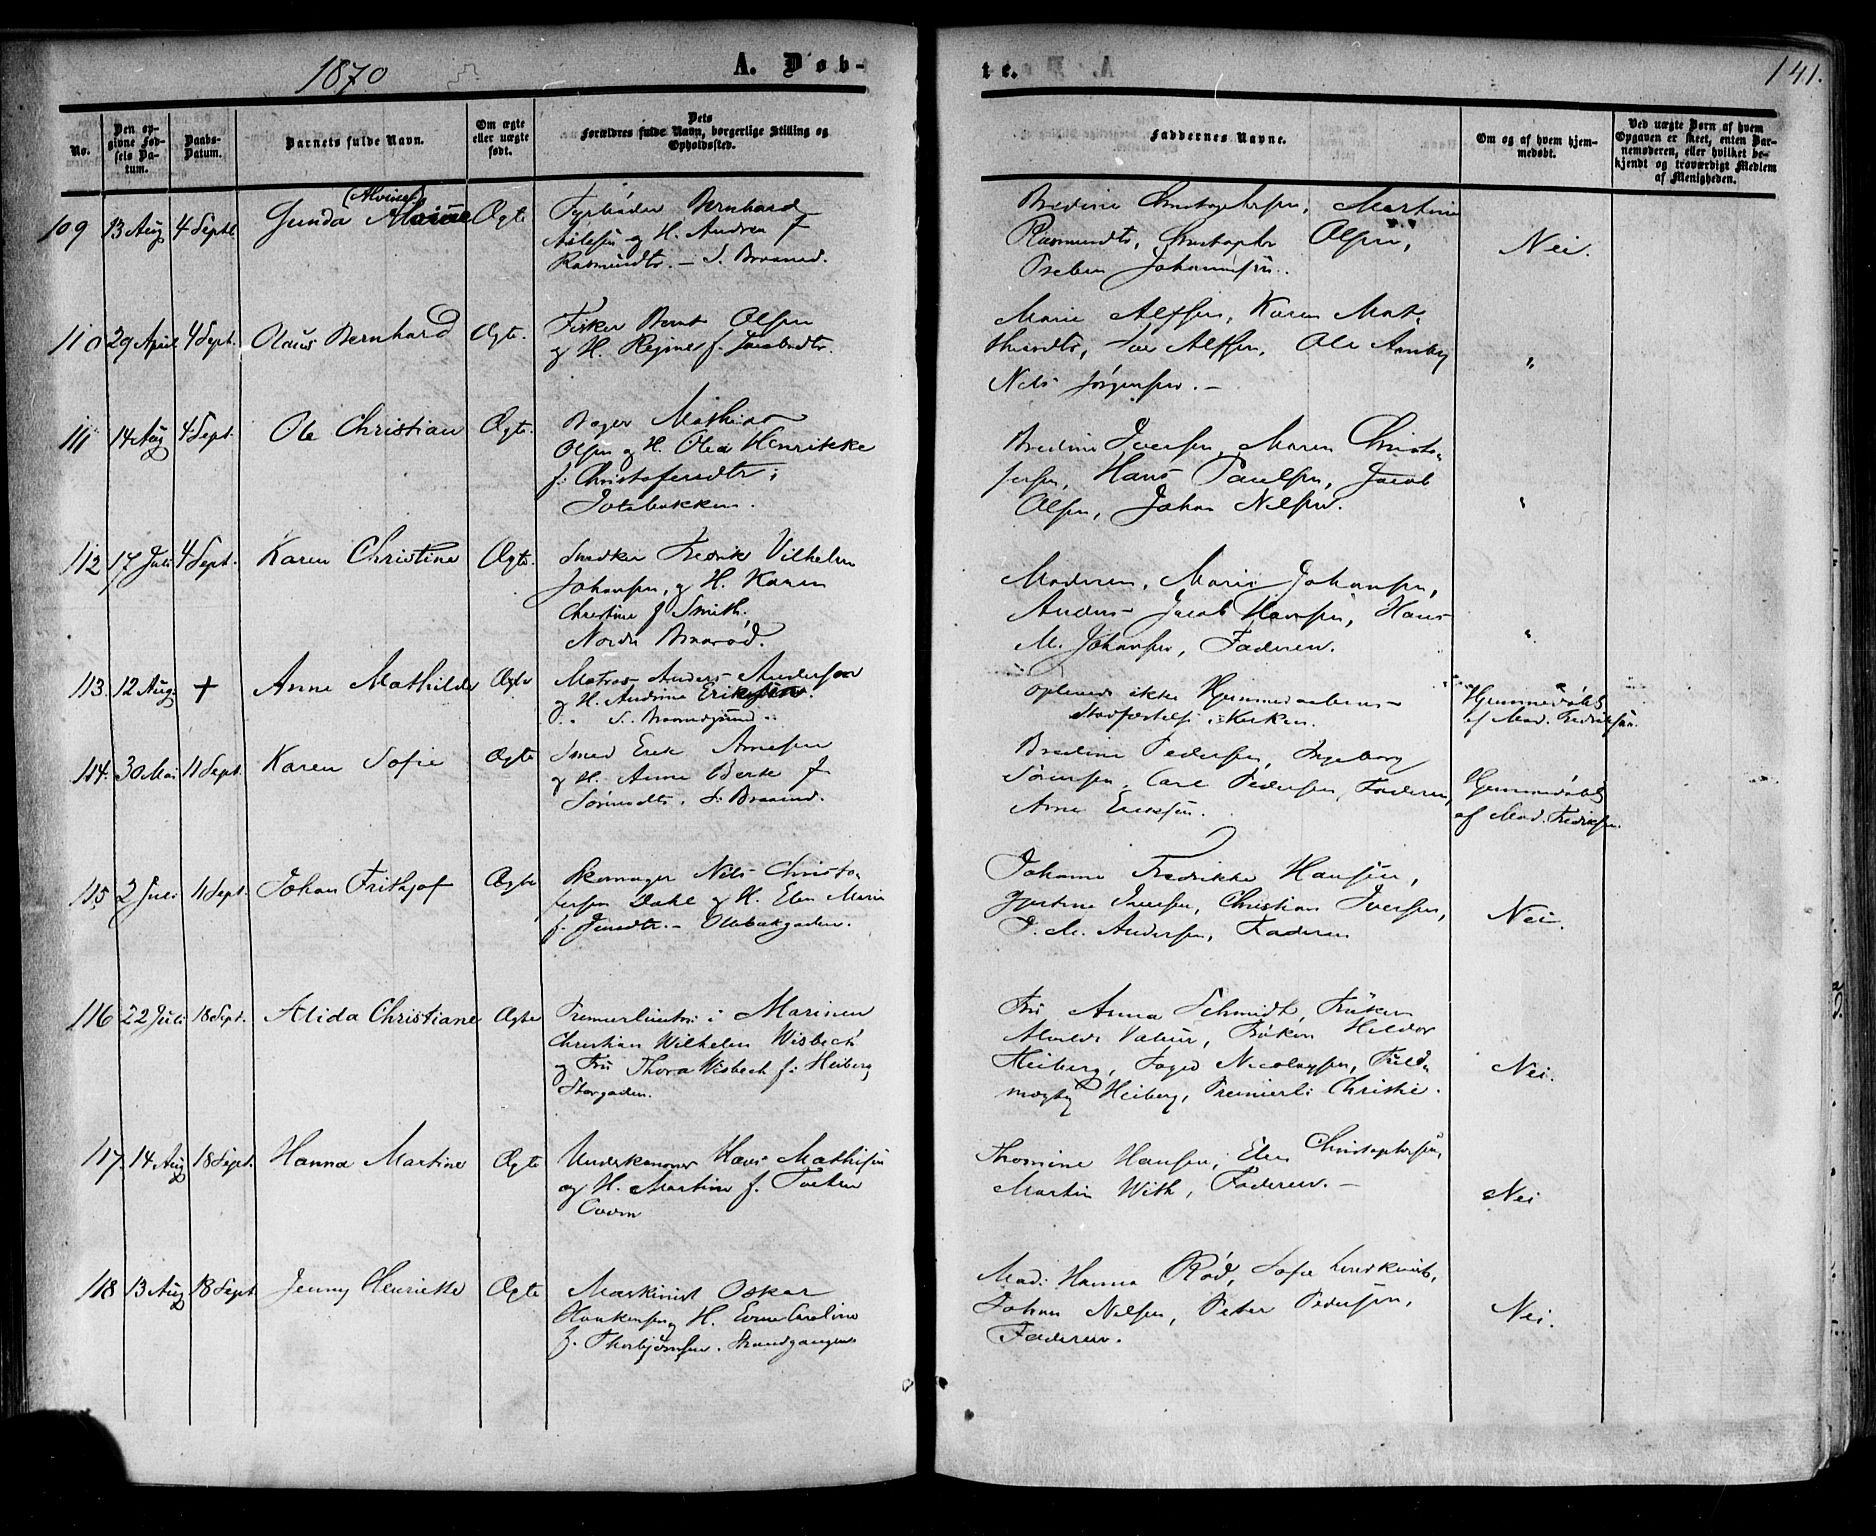 1870
A. Døb-
te.
141.
No.
Den op-
givne Fød-
sels Da-
tum.
Daabs-
Datum.
Barnets fulde Navn.
Om ægte
eller uægte
født.
Dets
Forældres fulde Navn, borgerlige Stilling og
Opholdssted.
Faddernes Navne.
Om og af hvem hjem-
medøbt.
Ved uægte Børn af hvem
Opgaven er skeet, enten Bar-
nemoderen, eller hvilket be-
kjendt og troværdigt Medlem
af Menigheden.
109 13 Aug 4 Septb
(Alvine)
Gunda
Ægte
Fyrbøder Bernhard
og H. Andrea f
Rasmusdtr. – S. Braaned.
Bredine Christophersen, Martine
Rasmusdtr, Christopher Olsen,
Preben Johannesen.
Nei.
110 29 April 4 Sept. Olaus Bernhard Ægte.
Fisker Bernt Olsen
og H. Regine f. Jacobsdtr.
Marie Alfsen, Karen Mat-
Alfsen, Ole
Nils Jørgensen. –
"
111 14 Aug 4 Sept. Ole Christian Ægte.
Bager Mathias
Olsen og H. Olea Henrikke
f. Christofersdtr.
Totebakken.
Bredine Iversen, Maren Christo-
fersen, Hans Paulsen, Jacob
Olsen, Johan Nilsen.
"
112 17 Juli 4 Sept. Karen Christine Ægte.
Snedker Fredrik Vilhelm
Johansen, og H. Karen
Christine f Smith,
Nordre Brarød.
Moderen, Marie Johansen,
Anders Jacob Hansen, Hans
M. Johansen, Faderen.
"
113. 12 Aug. + Anne Mathilde Ægte
Matros Anders Anderson
og H. Andrine Eriksen
S.
oplevede ikke Hjemmedaabens
Stadfæstelse i Kirken.
Hjemmedøbt
af Mad. Fredriksen.
114. 30 Mai 11 Sept. Karen Sofie Ægte
Smed Erik Arnesen
og H. Anne Berte f
Sørensdtr. S. Braaned.
Bredine Pedersen, Ingeborg
Sørensen, Carl Pedersen, Faderen,
Arne Eriksen.
Hjemmedøbt
af Mad. Fredriksen.
115 2 Juli 11 Sept. Johan Frithjof Ægte
Skomager Nils Christo-
fersen Dahl og H. Elen Marie
f. Jensdtr. –
Johanne Fredrikke Hansen,
Gjertine Iversen, Christian Iversen,
J. M. Andersen, Faderen
Nei.
116 22 Juli 18 Sept. Alida Christiane Ægte
Premierlieutn. i Marinen
Christian Wilhelm Wisbech
og Fru Thora Wisbech f. Heiberg
Storgaden.
Fru Anna Schmidt, Frøken
Frøken Hilda
Heiberg, Foged Nicolaysen, Fuld-
mægtig Heiberg, Premierl. Christie.
Nei.
117. 14 Aug 18 Sept. Hanna Martine Ægte
Underkanoner Hans Mathisen
og H. Martine f.
Thomine Hansen, Elen Christophersen,
Martin With, Faderen. –
Nei
118 13 Aug 18 Sept Jenny Henriette Ægte
Maskinist Oskar
Haakensen og H. Caroline
f. Thorbjørnsen.
Mad. Hanna Rød, Sofie
Johan Nilsen, Peter Pedersen,
Faderen.
Nei.